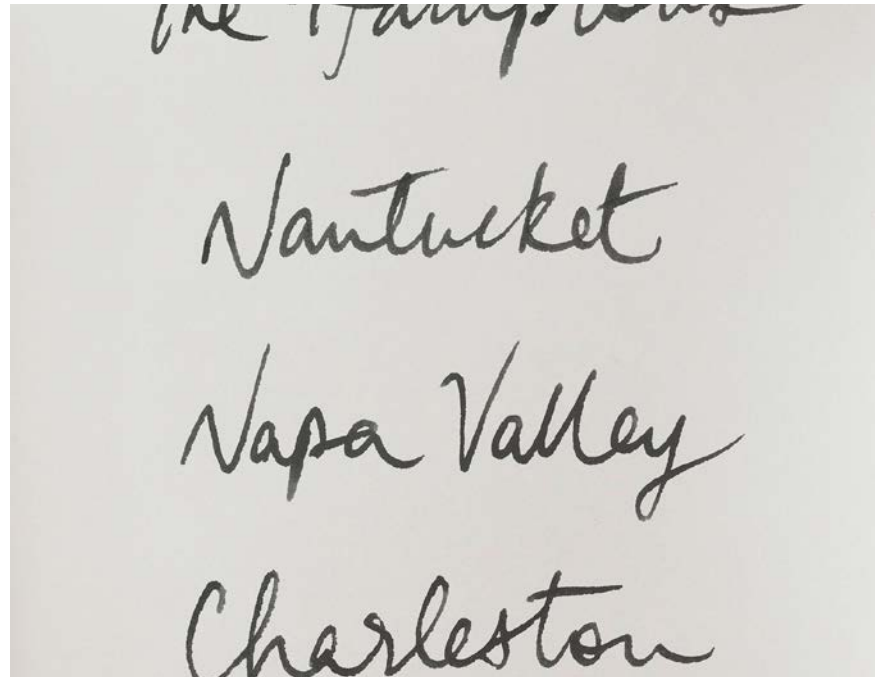 The Hamptons
Nantucket
Napa Valley
Charleston